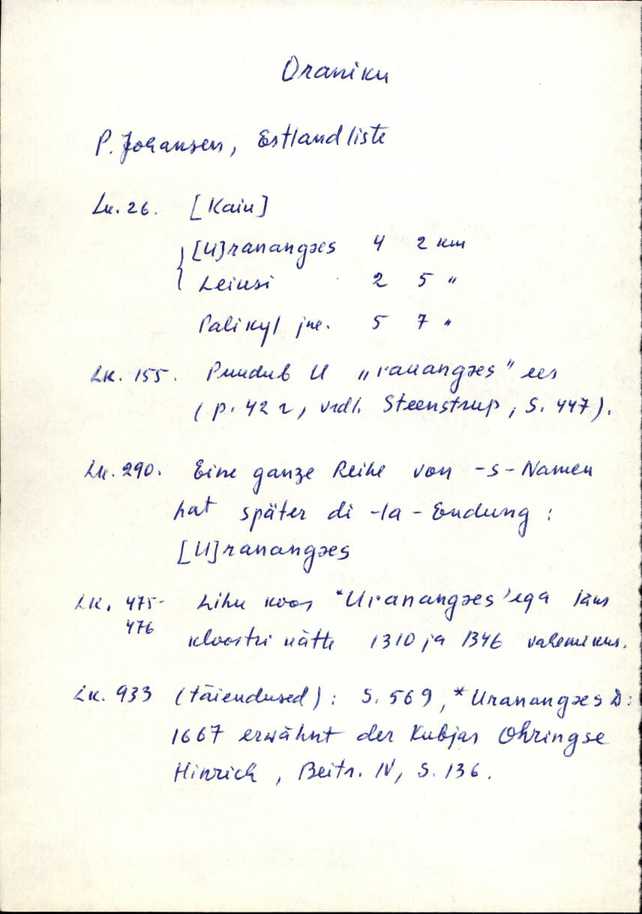 Oraniku
P. Johansen, Estlandliste
Lk. 26. [Kain]
[U]ranangæs 4 2 km
Leiusi 2 5 "
Palikyl jne. 5 7 "
Lk. 155. Puudub U „ranangæs" ees
(p. 42 r, vrdl. Steenstrup, S. 447).
Lk. 290. Eine ganze Reihe von -s-Namen
hat später di -la-Endung:
[U]ranangæs
Lk. 475-
476
Lihu koos *Uranangæs'ega läks
kloostri kätte 1310 ja 1346 vahemikus.
Lk. 933 (täiendused): S. 569, *Uranangæs D:
1667 erwähnt der Kubjas Ohringse
Hinrich, Beitr. IV, S. 136.